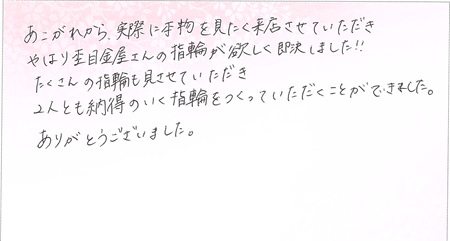 あこがれから、実際に本物を見たく来店させていただき
やはり杢目金屋さんの指輪が欲しく即決しました!!
たくさんの指輪も見させていただき
2人とも納得のいく指輪をつくっていただくことができました。
ありがとうございました。